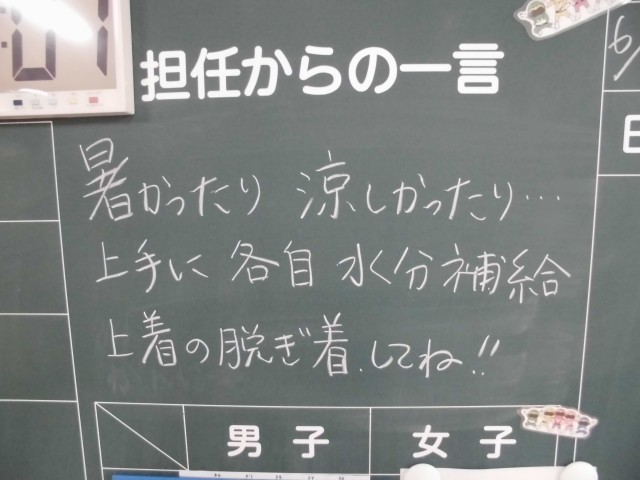 担任からの一言
暑かったり 涼しかったり…
上手に 各自 水分補給
上着の脱ぎ着.してね!!
男子 女子
6/